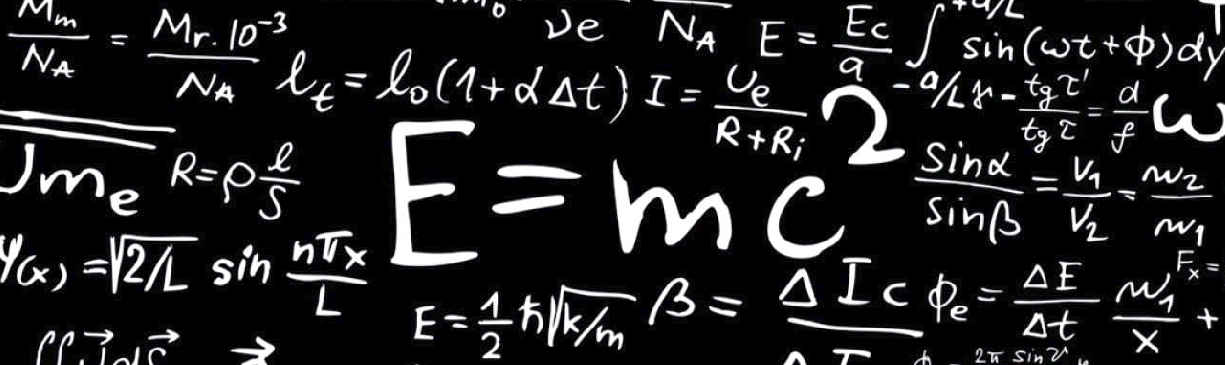 Mm/NA = Mr.10⁻³/NA
νe
NA
E = Ec/a
∫ sin(ωt+ϕ)dy
lt = l₀(1+αΔt)
I = Ue/R+Ri
tgτ'/tgτ = d/f
ω
me
R=ρ l/S
E=mc²
sinα/sinβ = V₁/V₂ = n₂/n₁
Ψ(x) = √2/L sin nπx/L
E = 1/2 ħ√k/m
β = ΔIc
ϕe = ΔE/Δt
n₁/x +
Fx =
2π sin